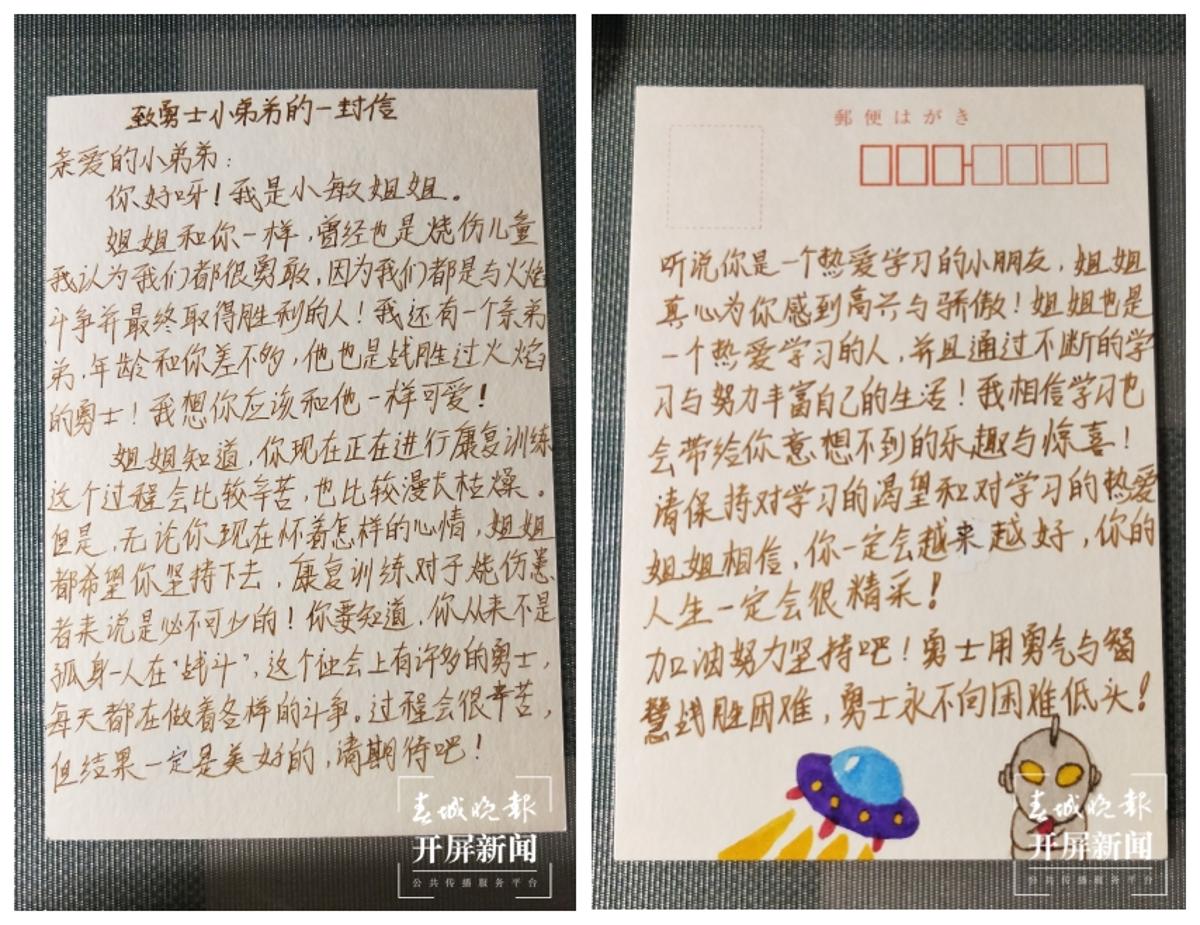 致勇士小弟弟的一封信
亲爱的小弟弟：
你好呀！我是小敏姐姐。
姐姐和你一样，曾经也是烧伤儿童
我认为我们都很勇敢，因为我们都是与火焰
斗争并最终取得胜利的人！我还有一个亲弟
弟，年龄和你差不多，他也是战胜过火焰
的勇士！我想你应该和他一样可爱！
姐姐知道，你现在正在进行康复训练
这个过程会比较辛苦，也比较漫长枯燥。
但是，无论你现在怀着怎样的心情，姐姐
都希望你坚持下去，康复训练对于烧伤患
者来说是必不可少的！你要知道，你从来不是
孤身一人在“战斗”，这个社会上有许多的勇士，
每天都在做着各样的斗争。过程会很辛苦，
但结果一定是美好的，请期待吧！
春城晚报
开屏新闻
公共传播服务平台
郵便はがき
听说你是一个热爱学习的小朋友，姐姐
真心为你感到高兴与骄傲！姐姐也是
一个热爱学习的人，并且通过不断的学
习与努力丰富自己的生活！我相信学习也
会带给你意想不到的乐趣与惊喜！
请保持对学习的渴望和对学习的热爱
姐姐相信，你一定会越来越好，你的
人生一定会很精采！
加油努力坚持吧！勇士用勇气与智
慧战胜困难，勇士永不向困难低头！
春城晚报
开屏新闻
公共传播服务平台